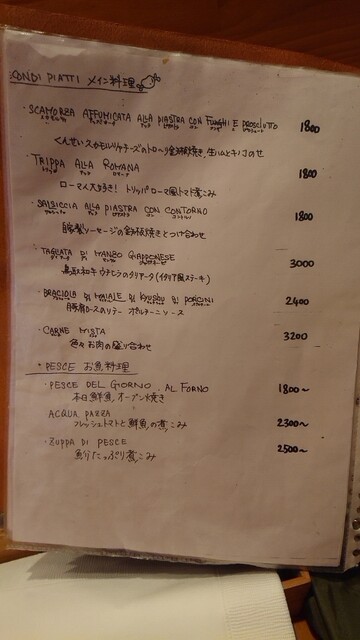 CONDI PIATTI メイン料理
・SCAMORZA AFFUMICATA ALLA PIASTRA CON FUNGHI E PROSCIUTTO 1800
くんせいスカモルツァチーズのトロ〜リ鉄板焼き 生ハムとキノコのせ
・TRIPPA ALLA ROMANA 1800
ローマ人大好き! トリッパ ローマ風トマト煮こみ
・SALSICCIA ALLA PIASTRA CON CONTORNO 1800
自家製ソーセージの鉄板焼きとつけ合わせ
・TAGLIATA DI MANZO GIAPPONESE 3000
鳥取和牛 のタリアータ (イタリア風ステーキ)
・BRACIOLA DI MAIALE DI KYUSHU AI PORCINI 2400
豚肩ロースのソテー ポルチーニソース
・CARNE MISTA 3200
色々お肉の盛り合わせ
・PESCE お魚料理
・PESCE DEL GIORNO AL FORNO 1800〜
本日鮮魚 オーブン焼き
ACQUA PAZZA 2300〜
フレッシュトマトと鮮魚の煮こみ
・ZUPPA DI PESCE 2500〜
魚介たっぷり煮こみ